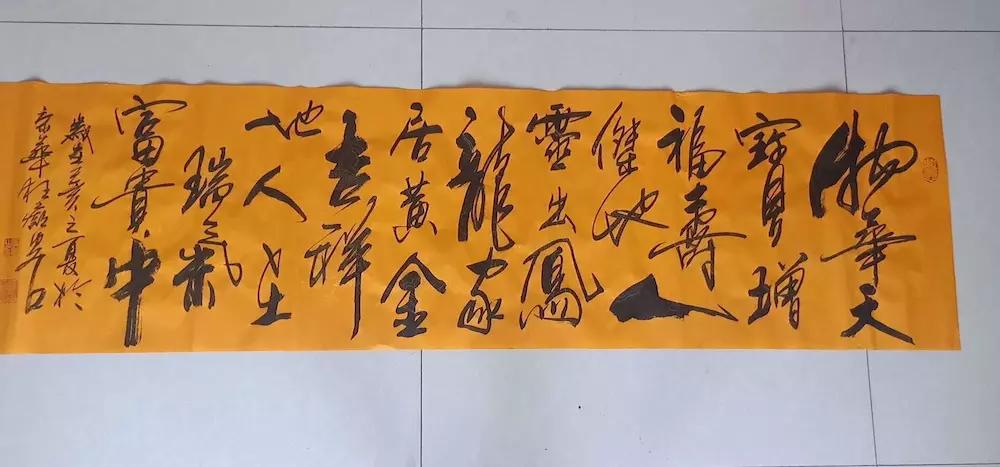 物華天
寶增
福壽人
傑地
靈出鳳
龍家
居黃金
吉祥
地人生
瑞氣
富貴中
歲在己亥之夏於
京華